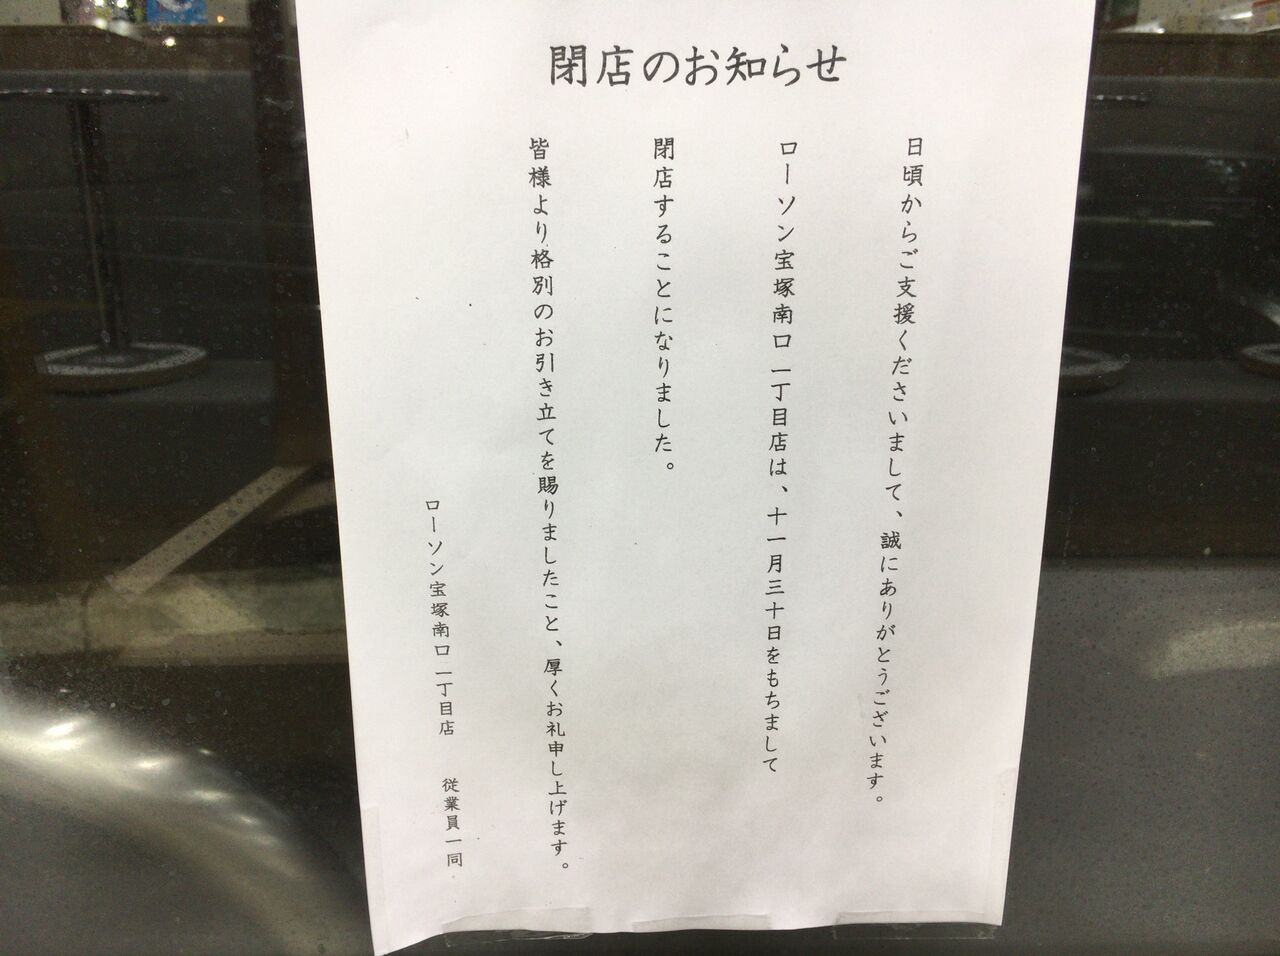 閉店のお知らせ
日頃からご支援くださいまして、誠にありがとうございます。
ローソン宝塚南口一丁目店は、十一月三十日をもちまして
閉店することになりました。
皆様より格別のお引き立てを賜りましたこと、厚くお礼申し上げます。
ローソン宝塚南口一丁目店　従業員一同